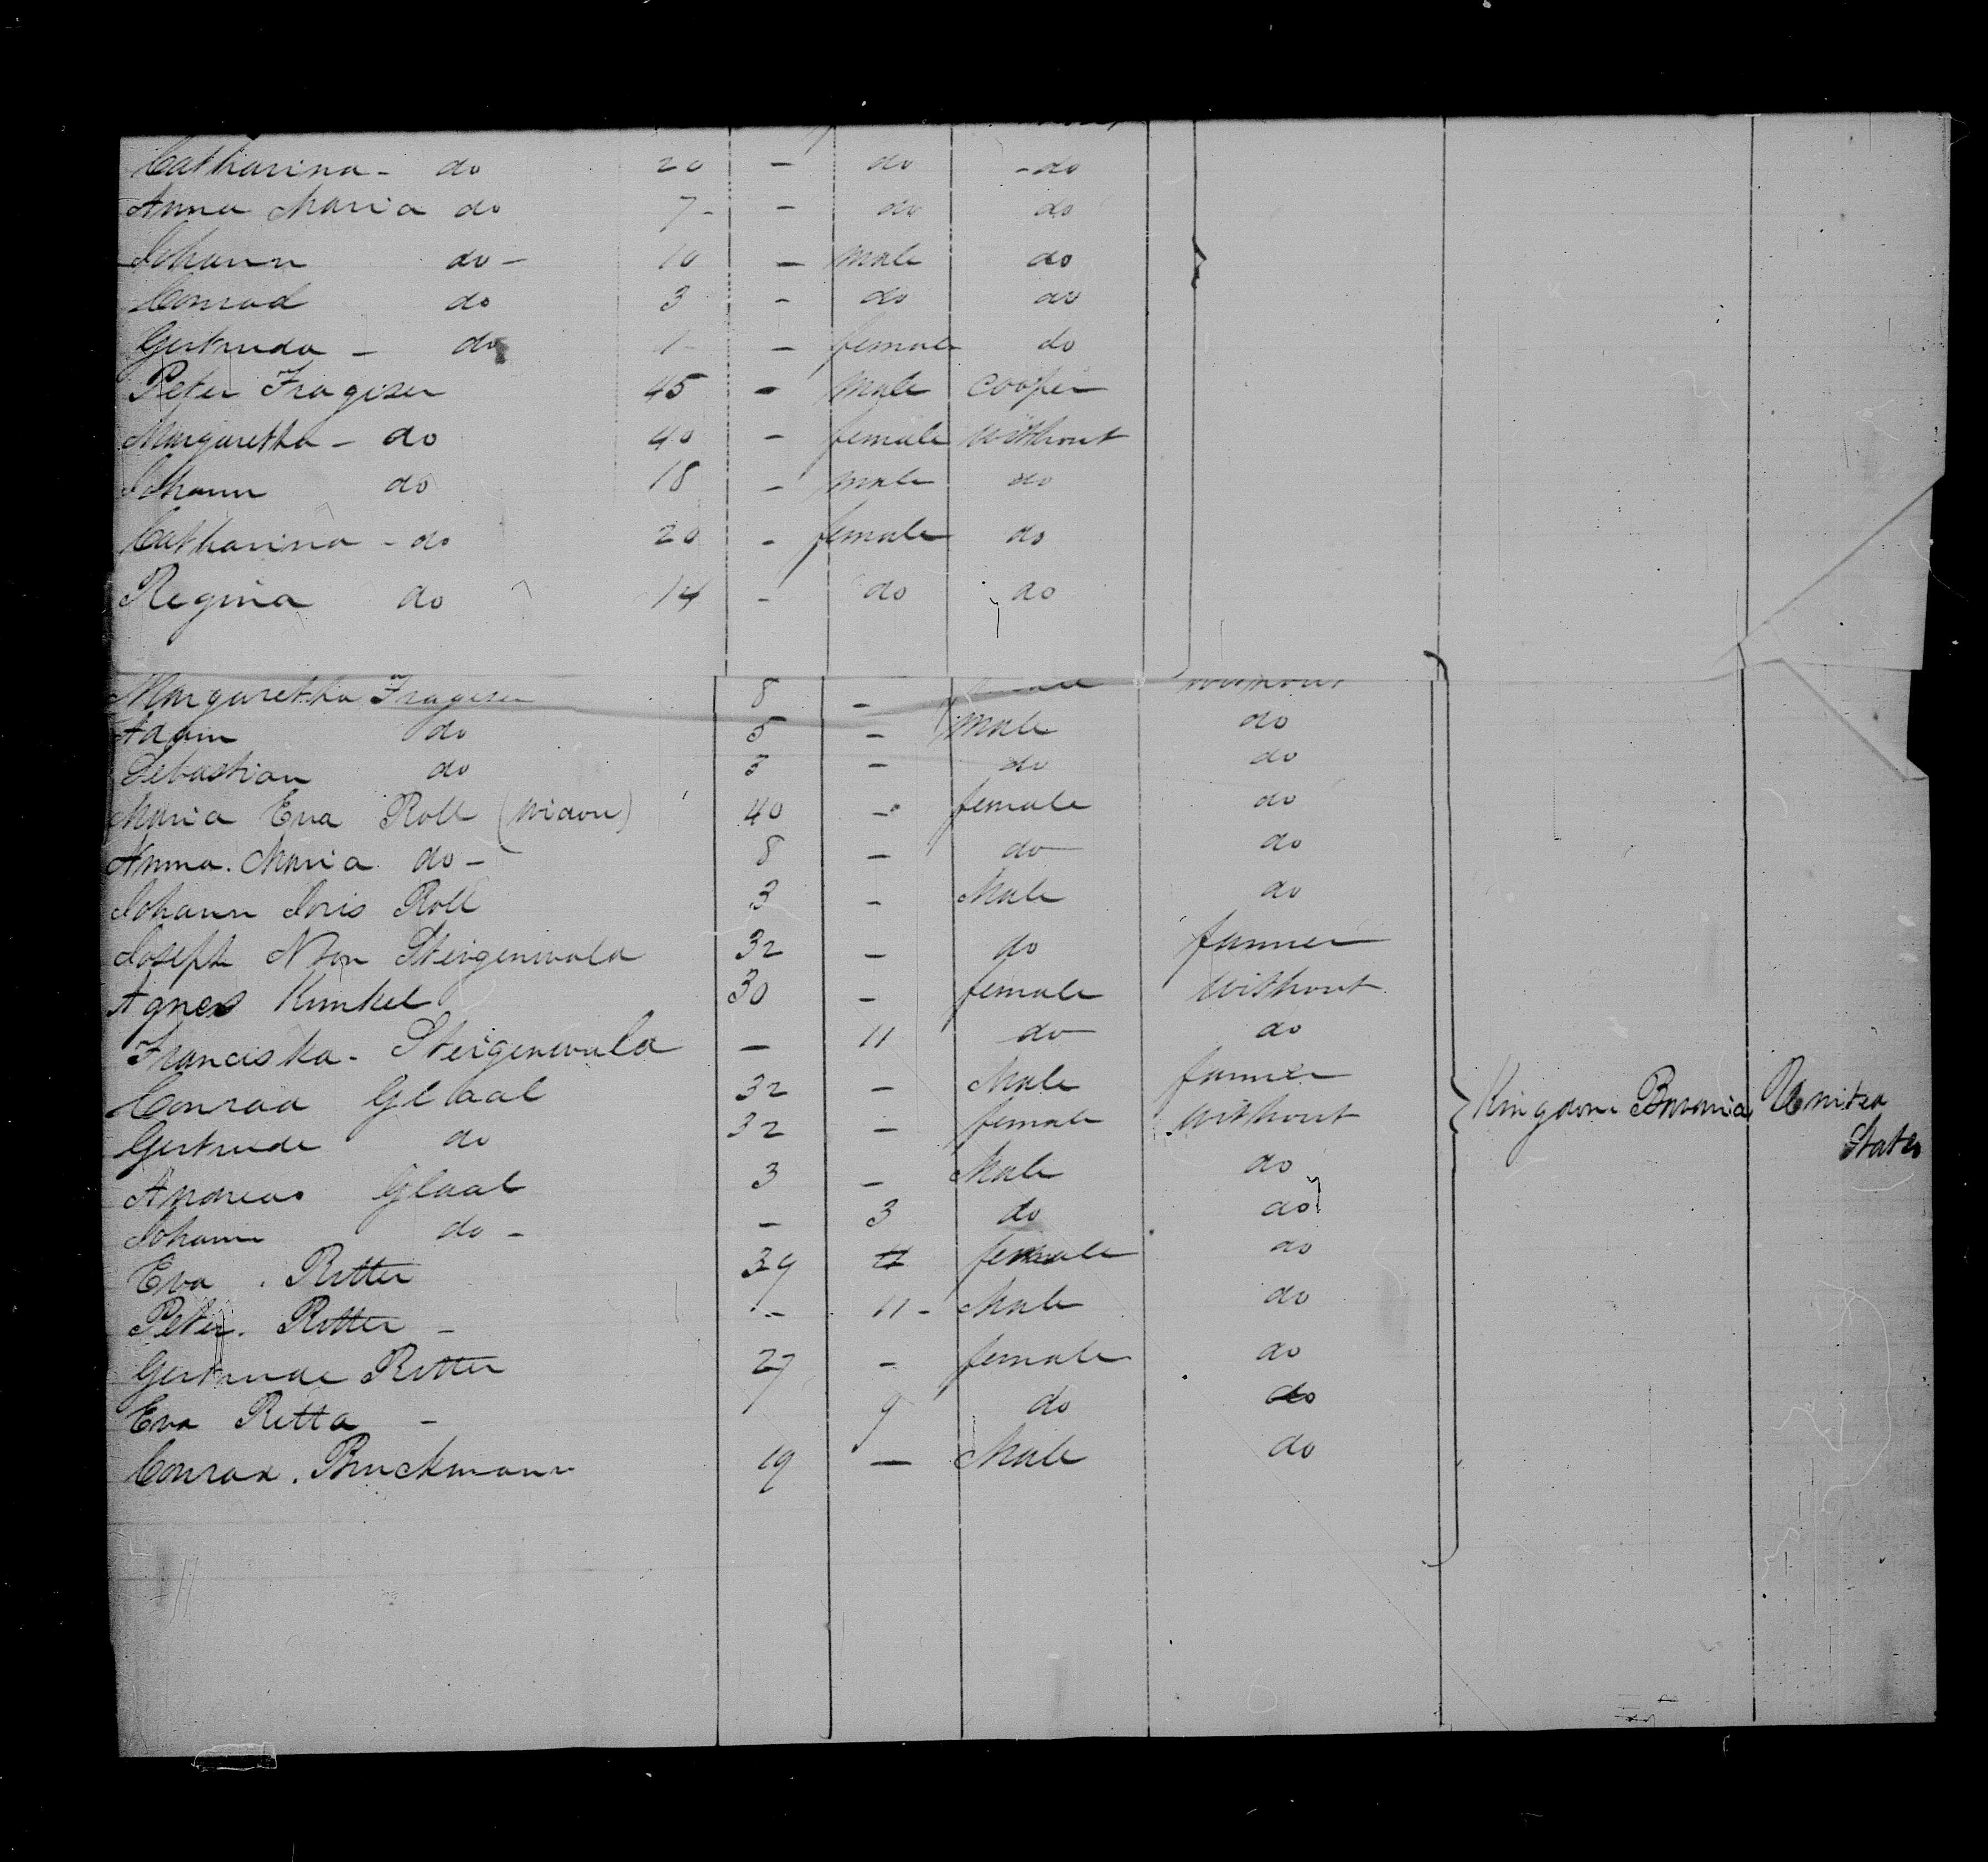 Catharina - do 20 - do - do
Anna Maria do 7 - - do do
Johann do - 10 - male do
Conrad do 3 - do do
Gertruda - do 1 - - female do
Peter Fragiser 45 - male Cooper
Margaretha - do 40 - female without
Johann do 18 - male do
Catharina - do 20 - female do
Regina do 14 - do do
Margaretha Fragiser 8 - female without
Adam do 5 - male do
Sebastian do 3 - do do
Maria Eva Roll (Widow) 40 - female do
Anna. Maria do - 8 - do do
Johann Joris Roll 3 - Male do
Joseph Steigerwald 32 - do farmer
Agnes Kunkel 30 - female without
Franciska - Steigerwald - 11 do do
Conrad Glaal 32 - Male farmer
Gertrude do 32 - female without
Kingdom Bavaria United States
Andreas Glaal 3 - Male do
Johann do - - 3 do do
Eva . Ritter 39 female do
Peter. Ritter - - 11 - Male do
Gertrude Ritter 27 - female do
Eva Ritta - 9 do do
Conrad. Bruckmann 19 - Male do